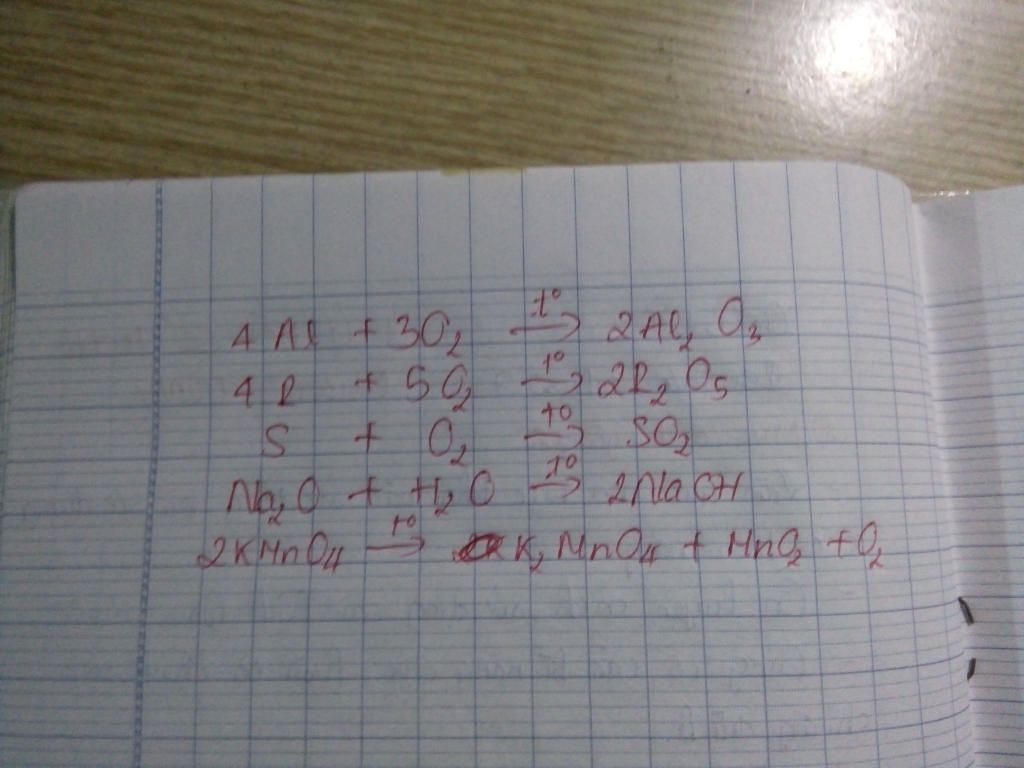 4 Al + 3O₂ —t°→ 2Al₂O₃
4 P + 5O₂ —t°→ 2P₂O₅
S + O₂ —t°→ SO₂
Na₂O + H₂O —t°→ 2NaOH
2KMnO₄ —t°→ K₂MnO₄ + MnO₂ + O₂